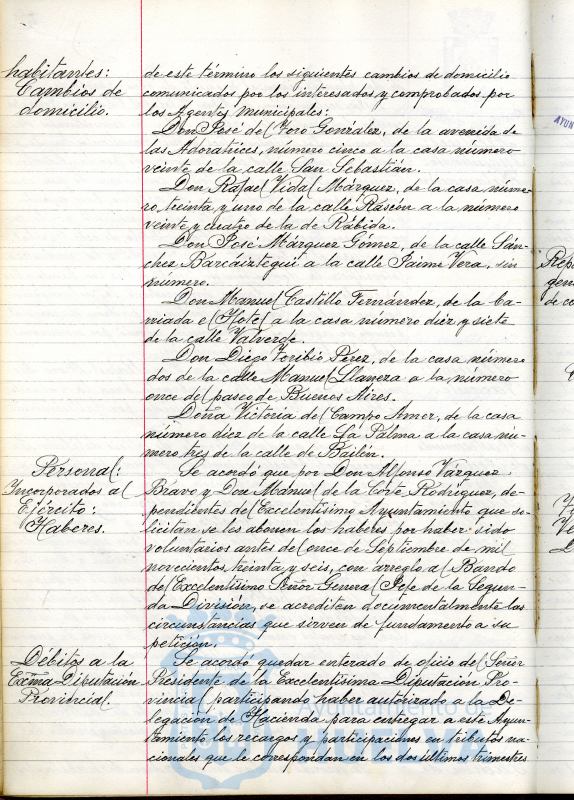 habitantes:
Cambios de
domicilio.
de este término los siguientes cambios de domicilio
comunicados por los interesados y comprobados por
los Agentes municipales:
Don José del Toro González, de la avenida de
las Adoratrices, número cinco a la casa número
veinte de la calle San Sebastián.
Don Rafael Vidal Márquez, de la casa núme-
ro, treinta y uno de la calle Rascón a la número
veinte y cuatro de la de Rábida.
Don José Márquez Gómez, de la calle Sán-
chez Barcáiztegui a la calle Jaime Vera, sin
número.
Don Manuel Castillo Fernández, de la ba-
rriada el Hotel a la casa número diez y siete
de la calle Valverde.
Don Diego Toribio Pérez, de la casa número
dos de la calle Manuel Llaneza a la número
once del paseo de Buenos Aires.
Doña Victoria del Campo Amer, de la casa
número diez de la calle La Palma a la casa nú-
mero tres de la calle de Bailén.
Personal:
Incorporados al
Ejército:
Haberes.
Se acordó que por Don Alfonso Vázquez
Bravo y Don Manuel de la Corte Rodríguez, de-
pendientes del Excelentísimo Ayuntamiento que so-
licitan se les abonen los haberes por haber sido
voluntarios antes del once de Septiembre de mil
novecientos treinta y seis, con arreglo al Bando
del Excelentísimo Señor General Jefe de la Segun-
da División, se acrediten documentalmente las
circunstancias que sirven de fundamento a su
petición.
Débitos a la
Excma Diputación
Provincial.
Se acordó quedar enterado de oficio del Señor
Presidente de la Excelentísima Diputación Pro-
vincial participando haber autorizado a la De-
legación de Hacienda para entregar a este Ayun-
tamiento los recargos y participaciones en tributos na-
cionales que le correspondan en los dos últimos trimestres
Ayuntamiento de
HUELVA
AYUN
de co